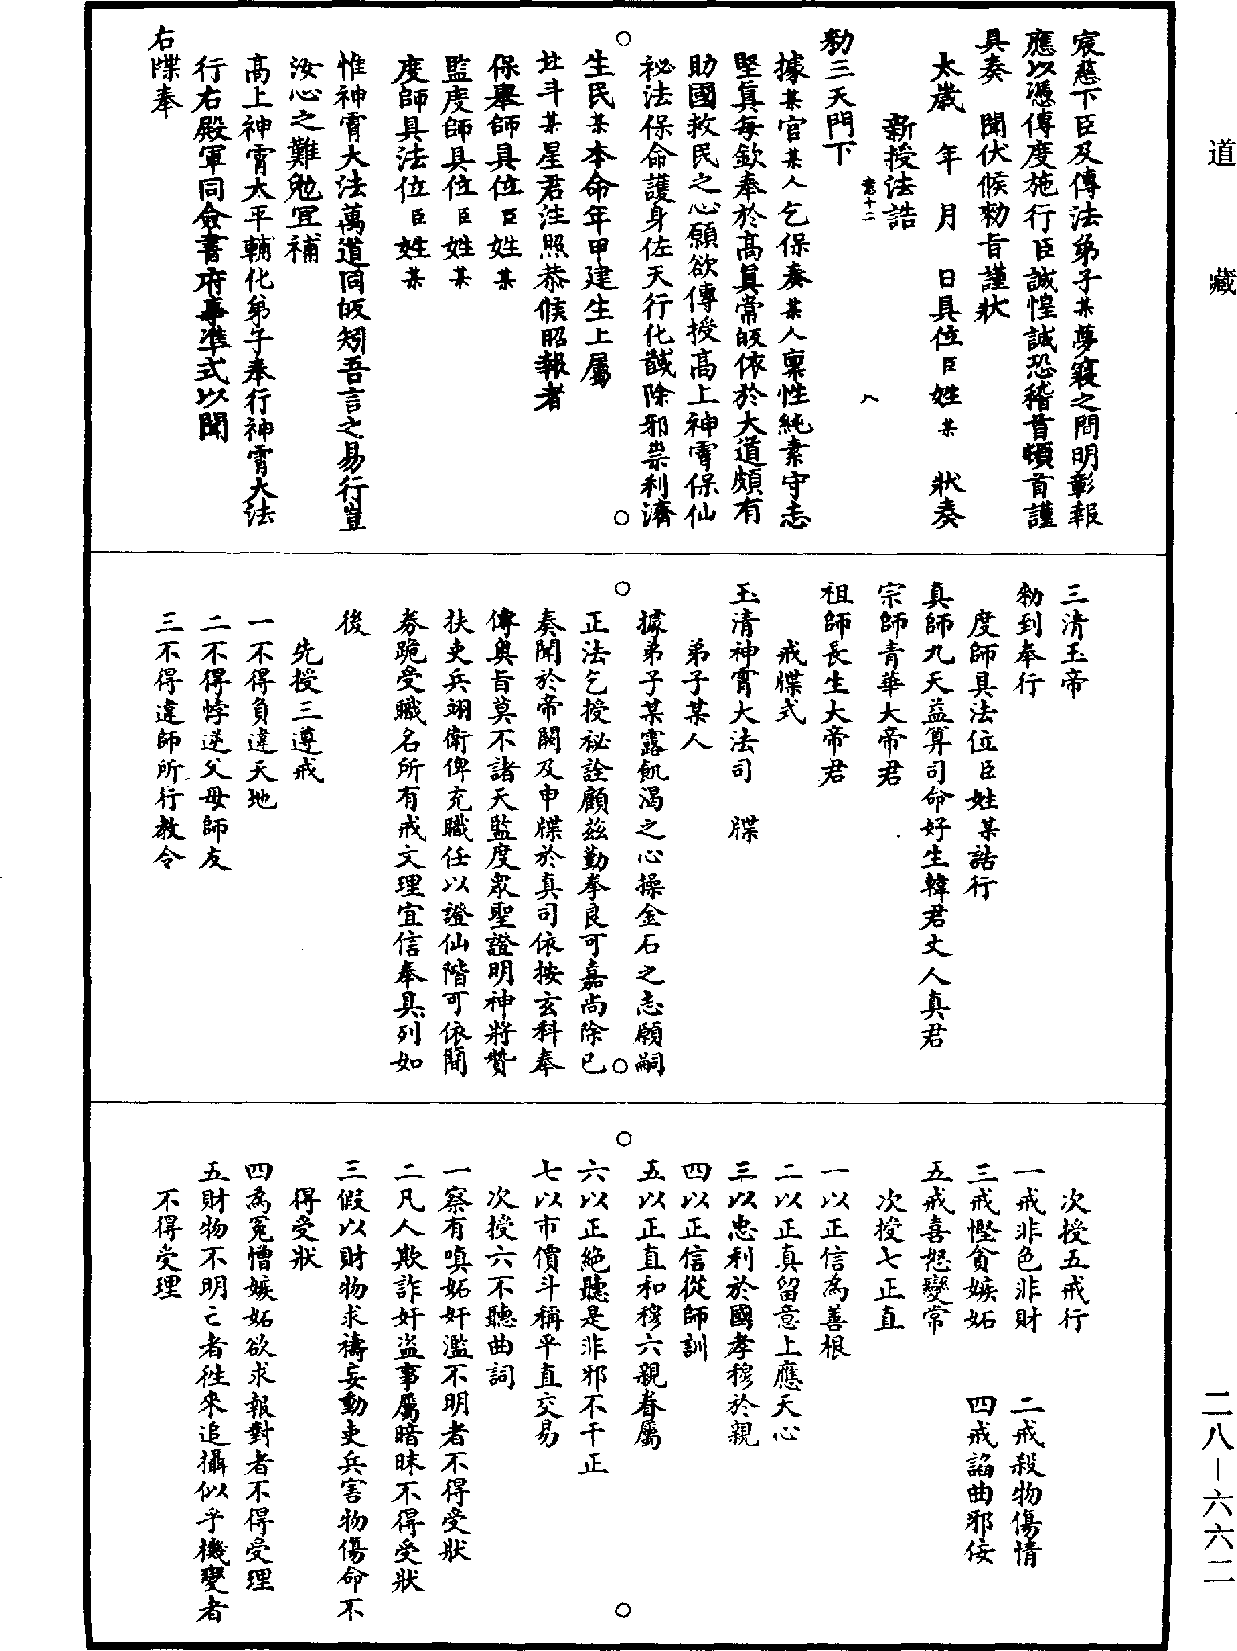 道藏
宸慈下臣及傳法弟子某夢寢之間明彰報
應以憑傳度施行臣誠惶誠恐稽首頓首謹
具奏　聞伏候勑旨謹狀
太歲　年　月　日具位臣姓某　狀奏
新授法誥
八
勑三天門下
據某官某人乞保奏某人稟性純素守志
堅真每欽奉於高真常皈依於大道頗有
助國救民之心願欲傳授高上神霄保仙
祕法保命護身佐天行化馘除邪祟利濟
生民某本命年甲建生上屬
北斗某星君注照恭候昭報者
保舉師具位臣姓某
監度師具位臣姓某
度師具法位臣姓某
惟神霄大法萬道同皈矧吾言之易行豈
汝心之難勉宜補
高上神霄太平輔化弟子奉行神霄大法
行右殿軍同僉書府事准式以聞
右牒奉
三清玉帝
勑到奉行
度師具法位臣姓某誥行
真師九天益算司命好生韓君丈人真君
宗師青華大帝君
祖師長生大帝君
戒牒式
玉清神霄大法司　牒
弟子某人
據弟子某露飢渴之心操金石之志願嗣
正法乞授祕詮顧茲勤拳良可嘉尚除已
奏聞於帝闕及申牒於真司依按玄科奉
傳奧旨莫不諸天監度眾聖證明神將贊
扶吏兵翊衛俾充職任以證仙階可依簡
券跪受職名所有戒文理宜信奉具列如
後
先授三遵戒
一不得負違天地
二不得悖逆父母師友
三不得違師所行教令
次授五戒行
一戒非色非財　　二戒殺物傷情
三戒慳貪嫉妬　　四戒諂曲邪佞
五戒喜怒變常
次授七正直
一以正信為善根
二以正真留意上應天心
三以忠利於國孝穆於親
四以正信從師訓
五以正直和穆六親眷屬
六以正絕聽是非邪不干正
七以市價斗稱平直交易
次授六不聽曲詞
一察有嗔妬奸濫不明者不得受狀
二凡人欺詐奸盜事屬暗昧不得受狀
三假以財物求禱妄動吏兵害物傷命不
得受狀
四為冤憎嫉妬欲求報對者不得受理
五財物不明亡者往來追攝似乎機變者
不得受理
二八—六六二